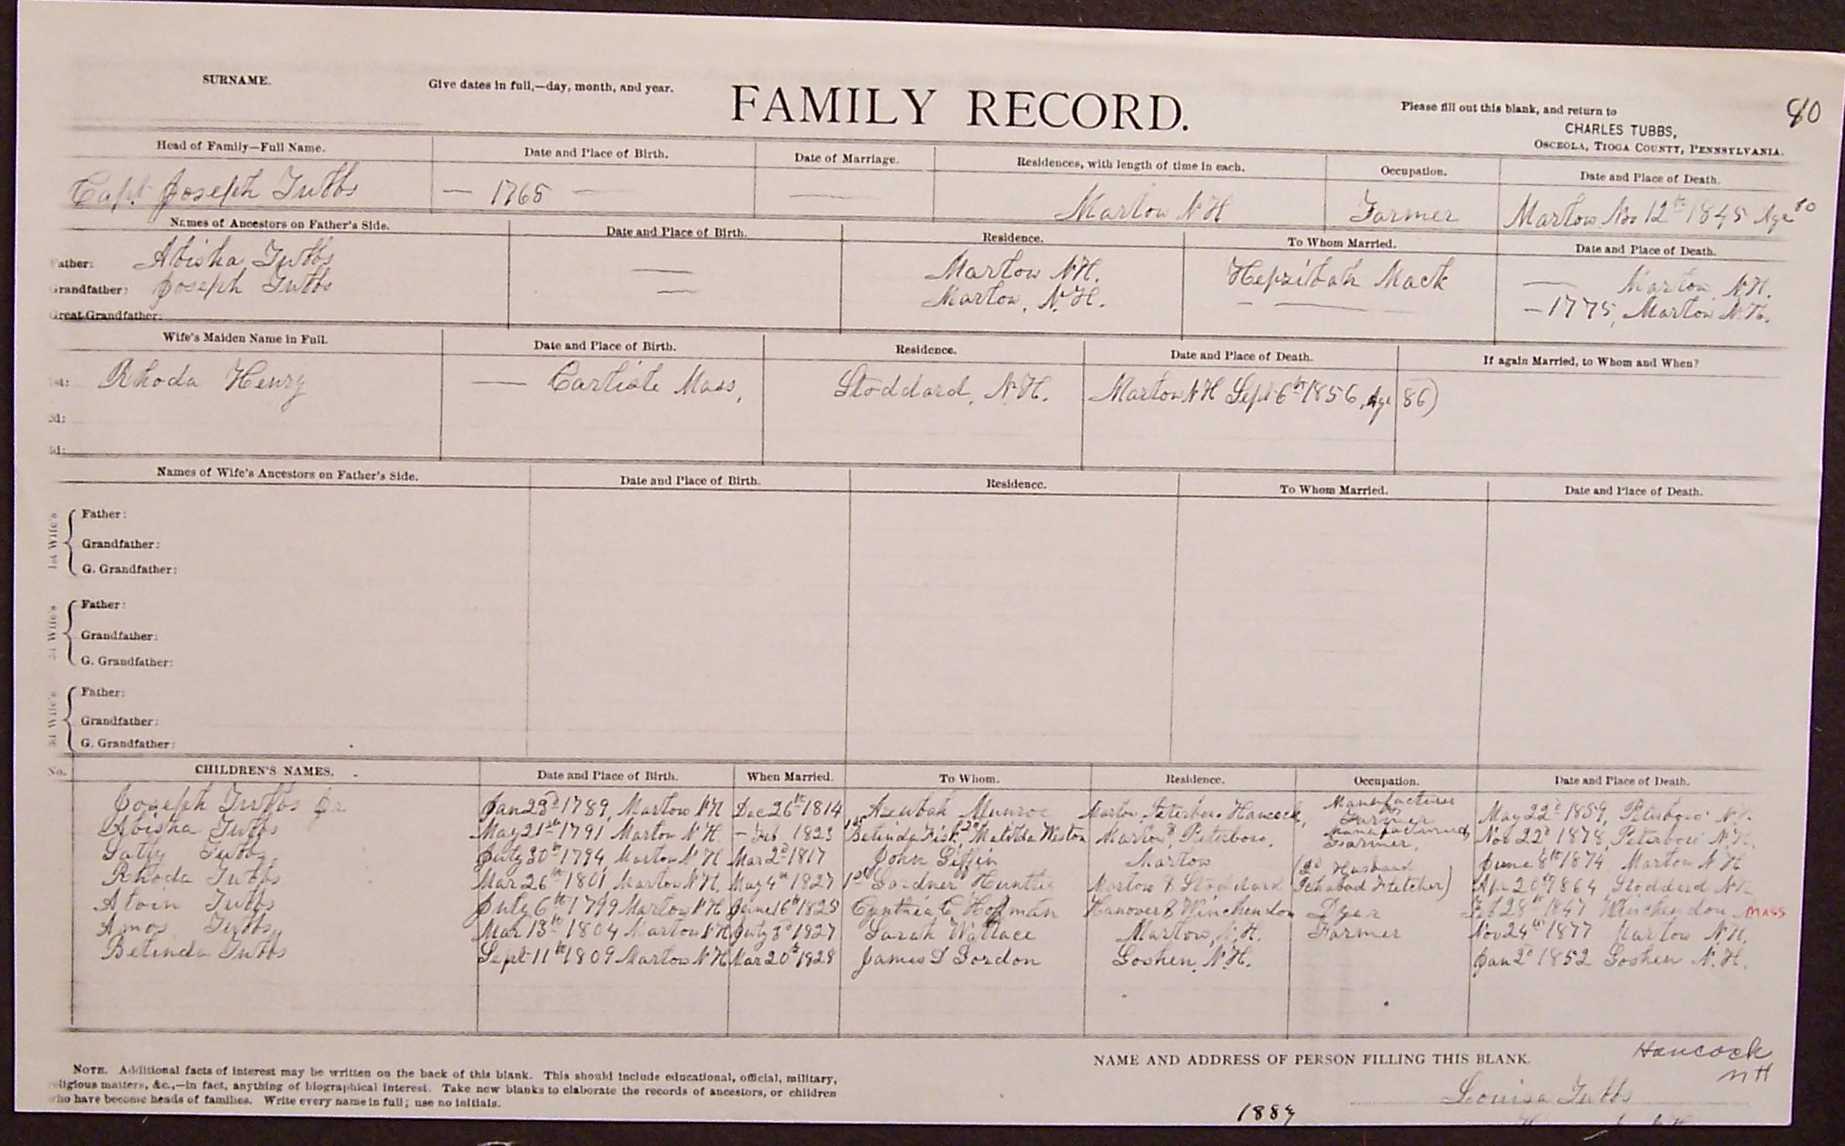 SURNAME.
Give dates in full,—day, month, and year.
FAMILY RECORD.
Please fill out this blank, and return to
CHARLES TUBBS,
OSCEOLA, TIOGA COUNTY, PENNSYLVANIA.
80
Head of Family—Full Name. Date and Place of Birth. Date of Marriage. Residences, with length of time in each. Occupation. Date and Place of Death.
Capt. Joseph Tubbs — 1765 — — Marlow N H Farmer Marlow Nov 12th 1845 Age 80
Names of Ancestors on Father's Side. Date and Place of Birth. Residence. To Whom Married. Date and Place of Death.
Father: Abisha Tubbs — Marlow N.H. Hepzibah Mack — Marlow N.H.
Grandfather: Joseph Tubbs — Marlow, N.H. — — — 1775, Marlow N.H.
Great Grandfather:
Wife's Maiden Name in Full. Date and Place of Birth. Residence. Date and Place of Death. If again Married, to Whom and When?
1st: Rhoda Henry — Carlisle Mass, Stoddard, N.H. Marlow N H Sept 6th 1856, Age 86)
2d:
3d:
Names of Wife's Ancestors on Father's Side. Date and Place of Birth. Residence. To Whom Married. Date and Place of Death.
1st Wife's
Father:
Grandfather:
G. Grandfather:
2d Wife's
Father:
Grandfather:
G. Grandfather:
3d Wife's
Father:
Grandfather:
G. Grandfather:
No. CHILDREN'S NAMES. Date and Place of Birth. When Married. To Whom. Residence. Occupation. Date and Place of Death.
Joseph Tubbs Jr Jan 23d 1789, Marlow N H Dec 26th 1814 Azubah Munroe Marlow, Peterboro Hancock, Manufacturer Farmer May 22d 1859, Peterboro' N.H.
Abisha Tubbs May 21st 1791 Marlow N.H. — Feb 1823 1st Belinda Fish, 2d Matilda Weston Marlow & Peterboro. Manufacturer & Farmer. Nov 22d 1878, Peterboro N.H.
Sally Tubbs, July 30th 1794, Marlow N H Mar 2d 1817 John Giffin Marlow June 8th 1874 Marlow N H
Rhoda Tubbs Mar 26th 1801, Marlow N H. May 4th 1827 1st Gardner Huntley Marlow & Stoddard (2d Husband Ichabod Fletcher) Apr 20th 1864 Stoddard N H
Alvin Tubbs July 6th 1799 Marlow N H June 16th 1825 Cynthia C Hoffman Hanover & Winchendon Dyer Feb 28th 1847 Winchendon MASS
Amos Tubbs, Mar 13th 1804 Marlow N H July 3d 1827 Sarah Wallace Marlow, N.H. Farmer Nov 24th 1877 Marlow N.H.
Belinda Tubbs Sept 11th 1809 Marlow N H Mar 20th 1828 James S Gordon Goshen, N.H. Jan 2d 1852 Goshen N.H.
NOTE. Additional facts of interest may be written on the back of this blank. This should include educational, official, military,
religious matters, &c.,—in fact, anything of biographical interest. Take new blanks to elaborate the records of ancestors, or children
who have become heads of families. Write every name in full; use no initials.
NAME AND ADDRESS OF PERSON FILLING THIS BLANK.
Hancock
NH
Louisa Tubbs
1889